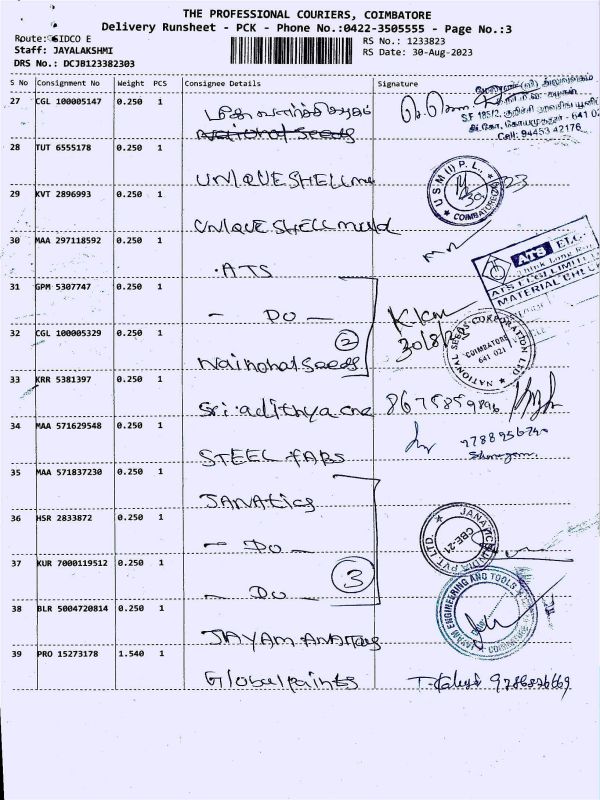 THE PROFESSIONAL COURIERS, COIMBATORE
Delivery Runsheet - PCK - Phone No.:0422-3505555 - Page No.:3
Route: SIDCO E
RS No.: 1233823
Staff: JAYALAKSHMI
RS Date: 30-Aug-2023
DRS No.: DCJB123382303
S No Consignment No Weight PCS Consignee Details Signature
27 CGL 100005147 0.250 1
National Seeds
S.F 185/2,
Cell: 94453 42176
28 TUT 6555178 0.250 1
UNIQUE SHELL
U S M (I) P. L., COIMBATORE
29 KVT 2896993 0.250 1
UNIQUE SHELL Mould
30 MAA 297118592 0.250 1
ATS
ATS ELGI LIMITED
MATERIAL CHECK
31 GPM 5307747 0.250 1
- DO -
2
30/8/23
32 CGL 100005329 0.250 1
National Seeds
NATIONAL SEEDS CORPORATION LTD
COIMBATORE
641 021
33 KRR 5381397 0.250 1
Sri. adithya cnc 8675859896
34 MAA 571629548 0.250 1
STEEL FABS
9788956740
35 MAA 571837230 0.250 1
JANATICS
36 HSR 2833872 0.250 1
- DO -
JANATICS INDIA PVT LTD.
CBE-21
37 KUR 7000119512 0.250 1
- DO -
3
38 BLR 5004720814 0.250 1
JAYAM
JAYAM ENGINEERING AND TOOLS
39 PRO 15273178 1.540 1
Global paints 9786826669